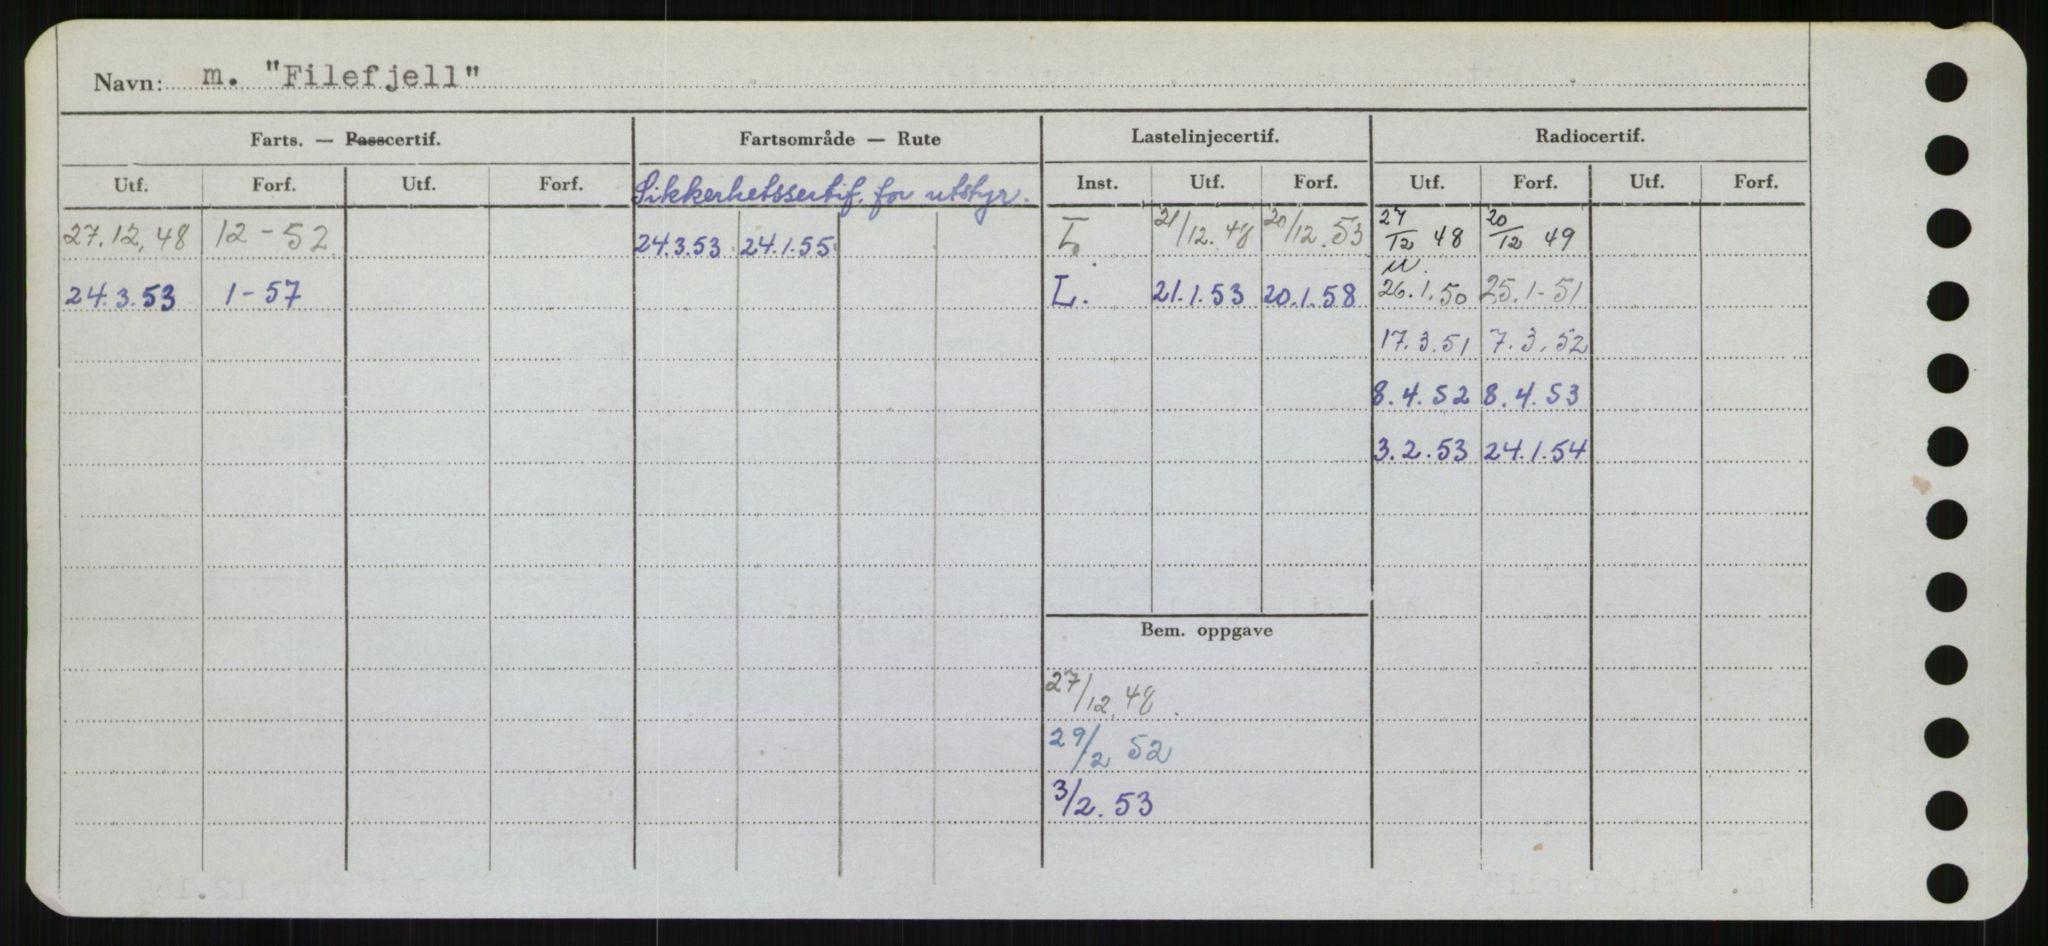 Navn: m. "Filefjell"
Farts. — Passcertif. Fartsområde — Rute Lastelinjecertif. Radiocertif.
Utf. Forf. Utf. Forf. Sikkerhetssertif. for utstyr. Inst. Utf. Forf. Utf. Forf. Utf. Forf.
27.12.48 12-52 24.3.53 24.1.55 L. 21/12.48 20/12.53 27/12 48 20/12 49
24.3.53 1-57 L. 21.1.53 20.1.58 26.1.50 25.1-51
17.3.51 7.3.52
8.4.52 8.4.53
3.2.53 24.1.54
Bem. oppgave
27/12.48
29/2 52
3/2.53